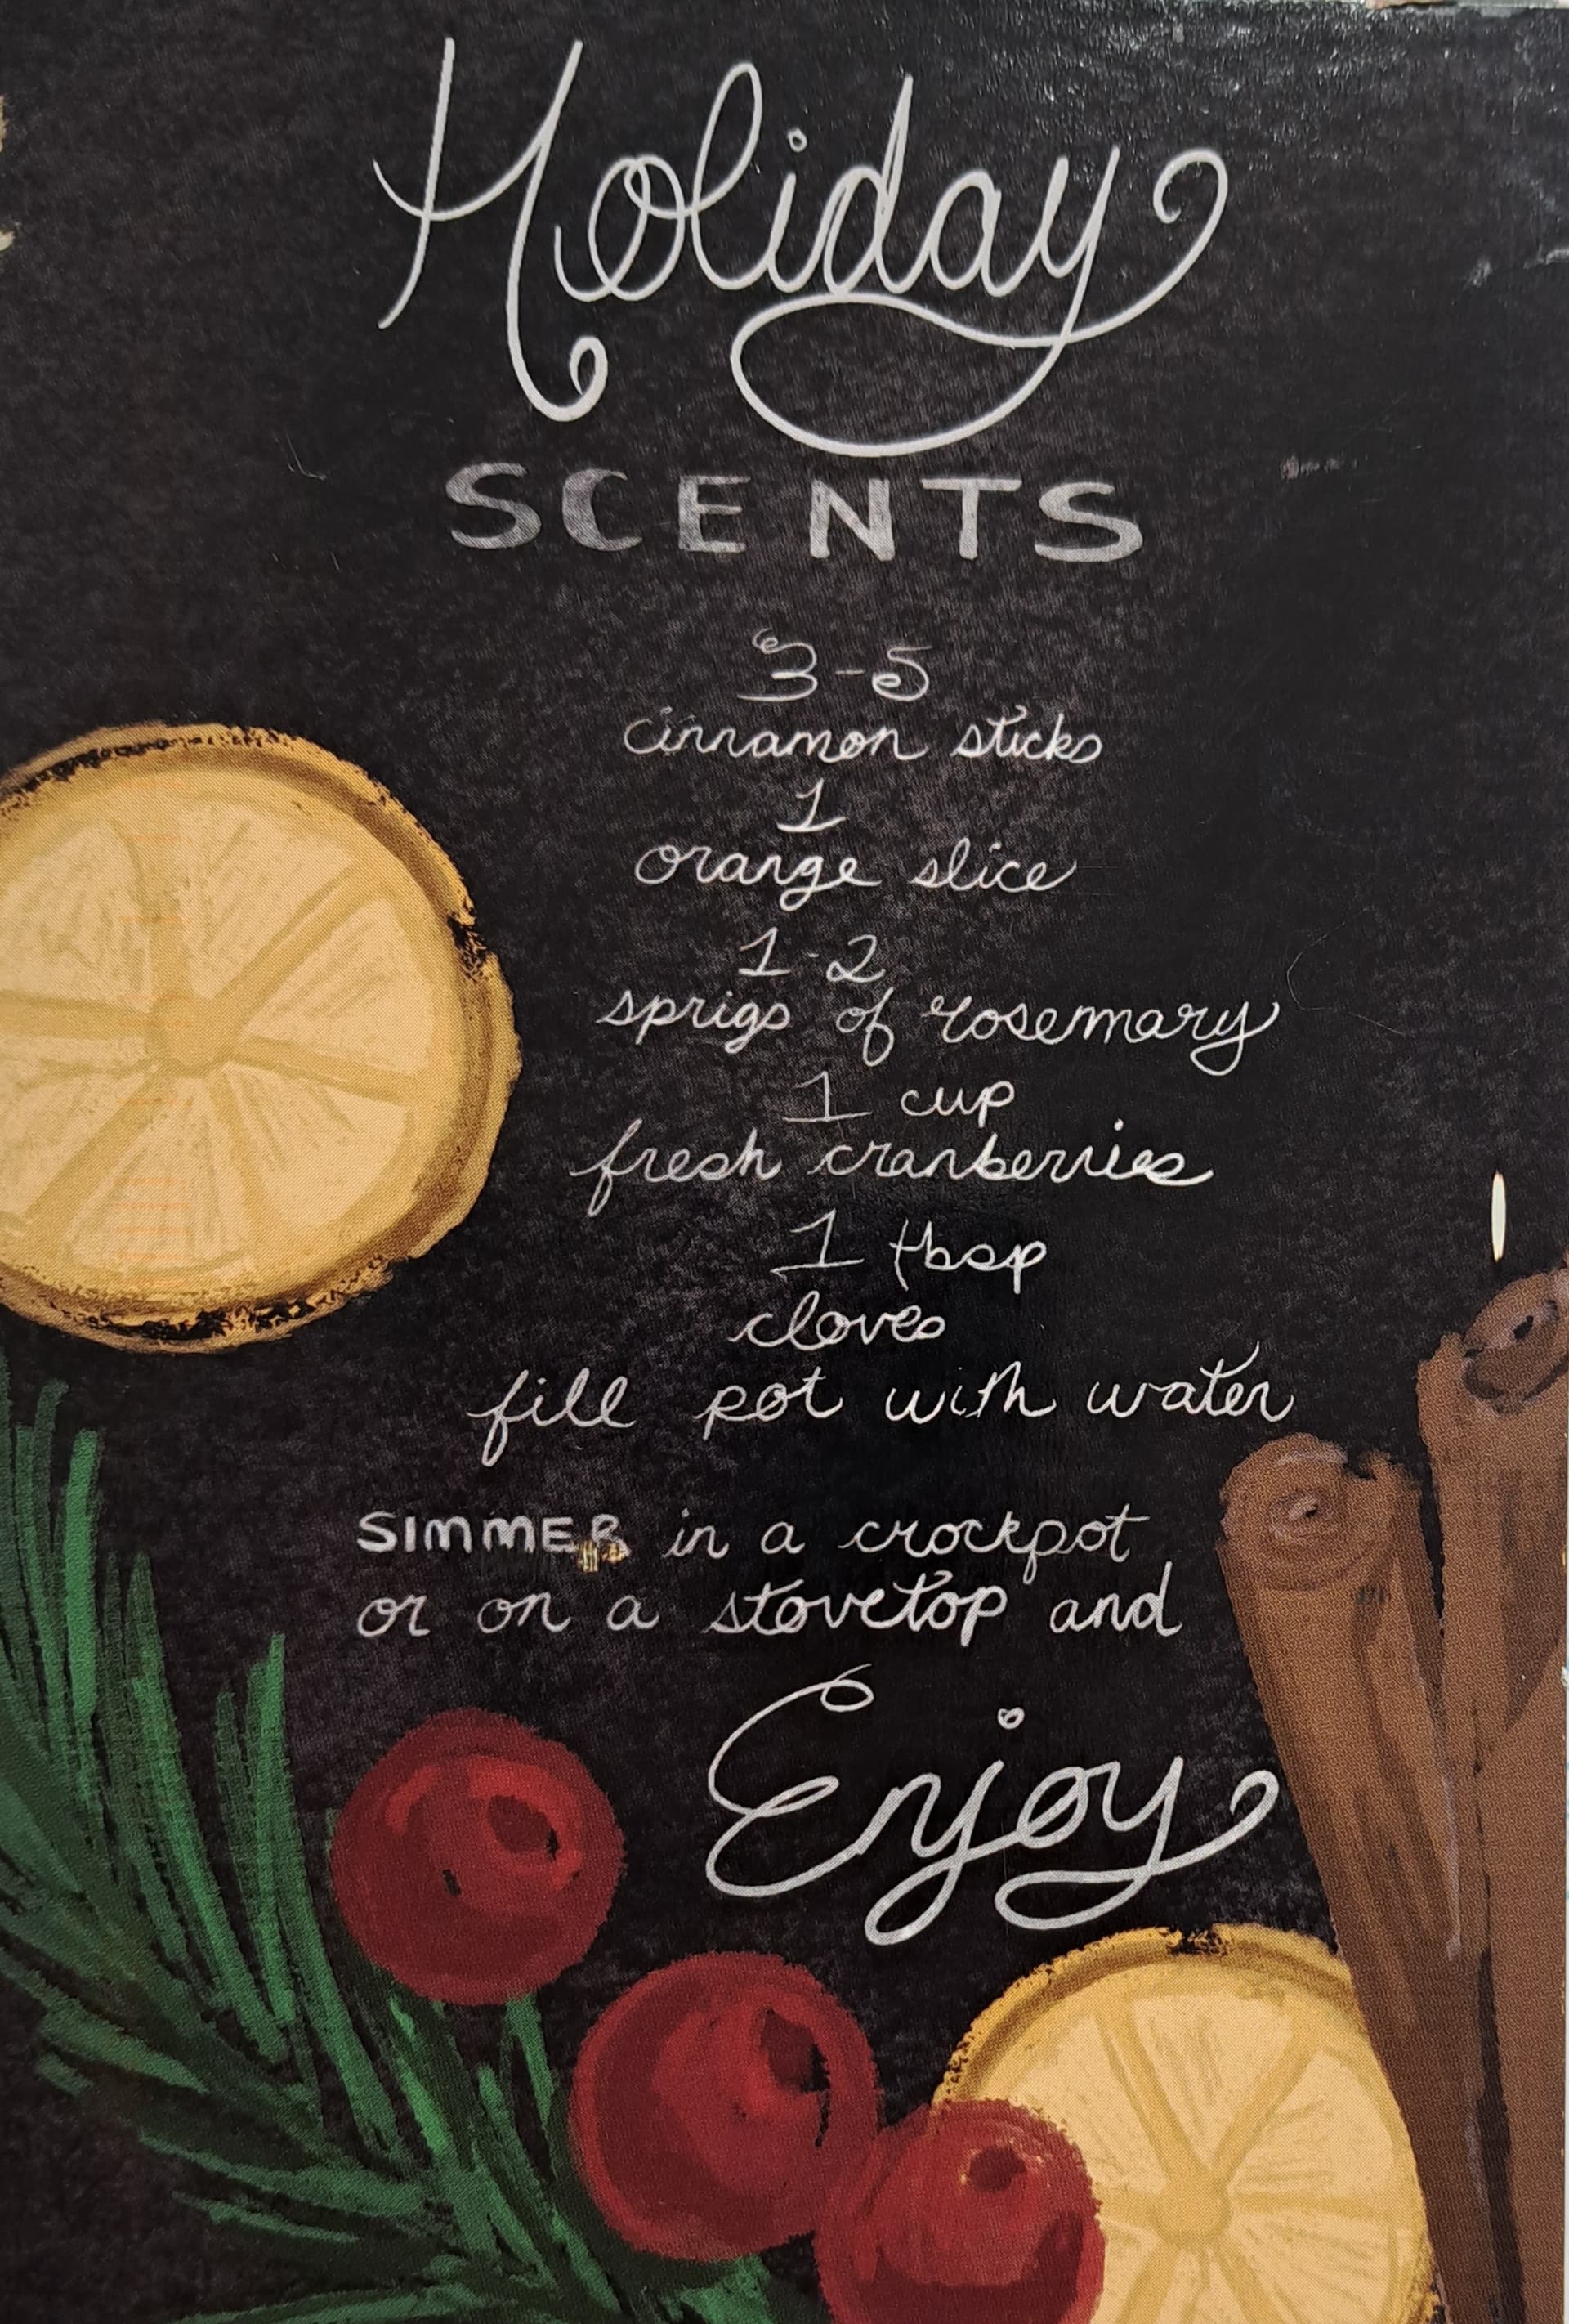 Holiday
SCENTS
3-5
cinnamon sticks
1
orange slice
1-2
sprigs of rosemary
1 cup
fresh cranberries
1 tbsp
cloves
fill pot with water
SIMMER in a crockpot
or on a stovetop and
Enjoy